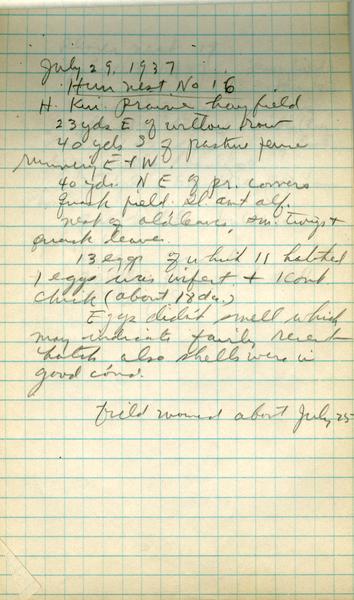 July 29, 1937
Hun nest No 16
H. Kin. prairie hay field
23 yds E of willow row
40 yds S of pasture fence
running E + W
40 yds. N E of pr. corners
Quack field. Sl. amt alf.
nest of old leaves, sm. twigs +
quack leaves.
13 eggs of which 11 hatched
1 eggs was infert + 1 cont
chick (about 18 da.)
Eggs didn't smell which
may indicate fairly recent
hatch also shells were in
good cond.
Field mowed about July 25